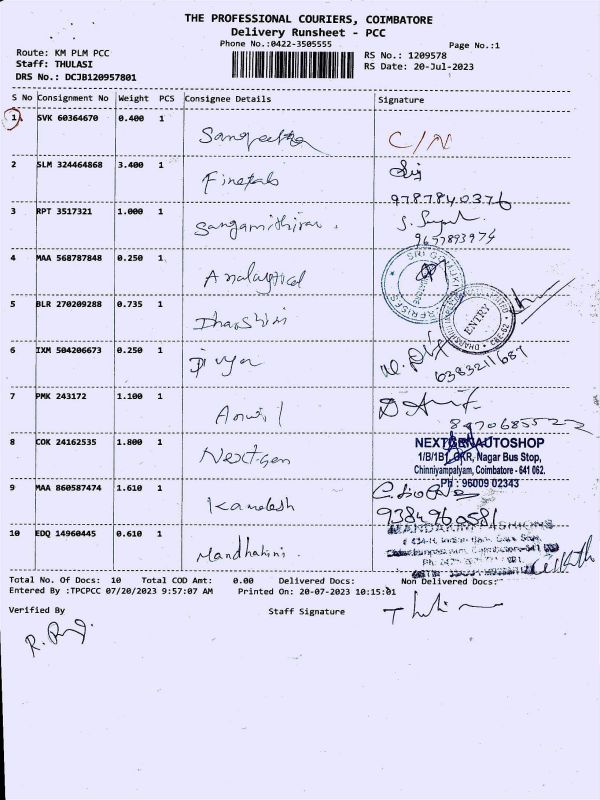 THE PROFESSIONAL COURIERS, COIMBATORE
Delivery Runsheet - PCC
Phone No.:0422-3505555
Page No.:1
Route: KM PLM PCC
Staff: THULASI
DRS No.: DCJB120957801
RS No.: 1209578
RS Date: 20-Jul-2023
S No Consignment No Weight PCS Consignee Details Signature
1 SVK 60364670 0.400 1 Sangeetha C/N
2 SLM 324464868 3.400 1 Finetab
9787840376
3 RPT 3517321 1.000 1 Sangamithirai
9657893974
4 MAA 568787848 0.250 1 Analaytical
5 BLR 270209288 0.735 1 Dharshini ENTRY
6 IXM 504206673 0.250 1 Divya
6383211687
7 PMK 243172 1.100 1
8970685522
8 COK 24162535 1.800 1 Nextgen NEXTGEN AUTOSHOP
1/B/1B1, GKR, Nagar Bus Stop,
Chinniyampalyam, Coimbatore - 641 062.
Ph : 96009 02343
9 MAA 860587474 1.610 1 Kamalesh
9384960581
10 EDQ 14960445 0.610 1 Mandhakini. MANDAKINI FASHIONS
Total No. Of Docs: 10 Total COD Amt: 0.00 Delivered Docs: Non Delivered Docs:
Entered By :TPCPCC 07/20/2023 9:57:07 AM Printed On: 20-07-2023 10:15:01
Verified By Staff Signature